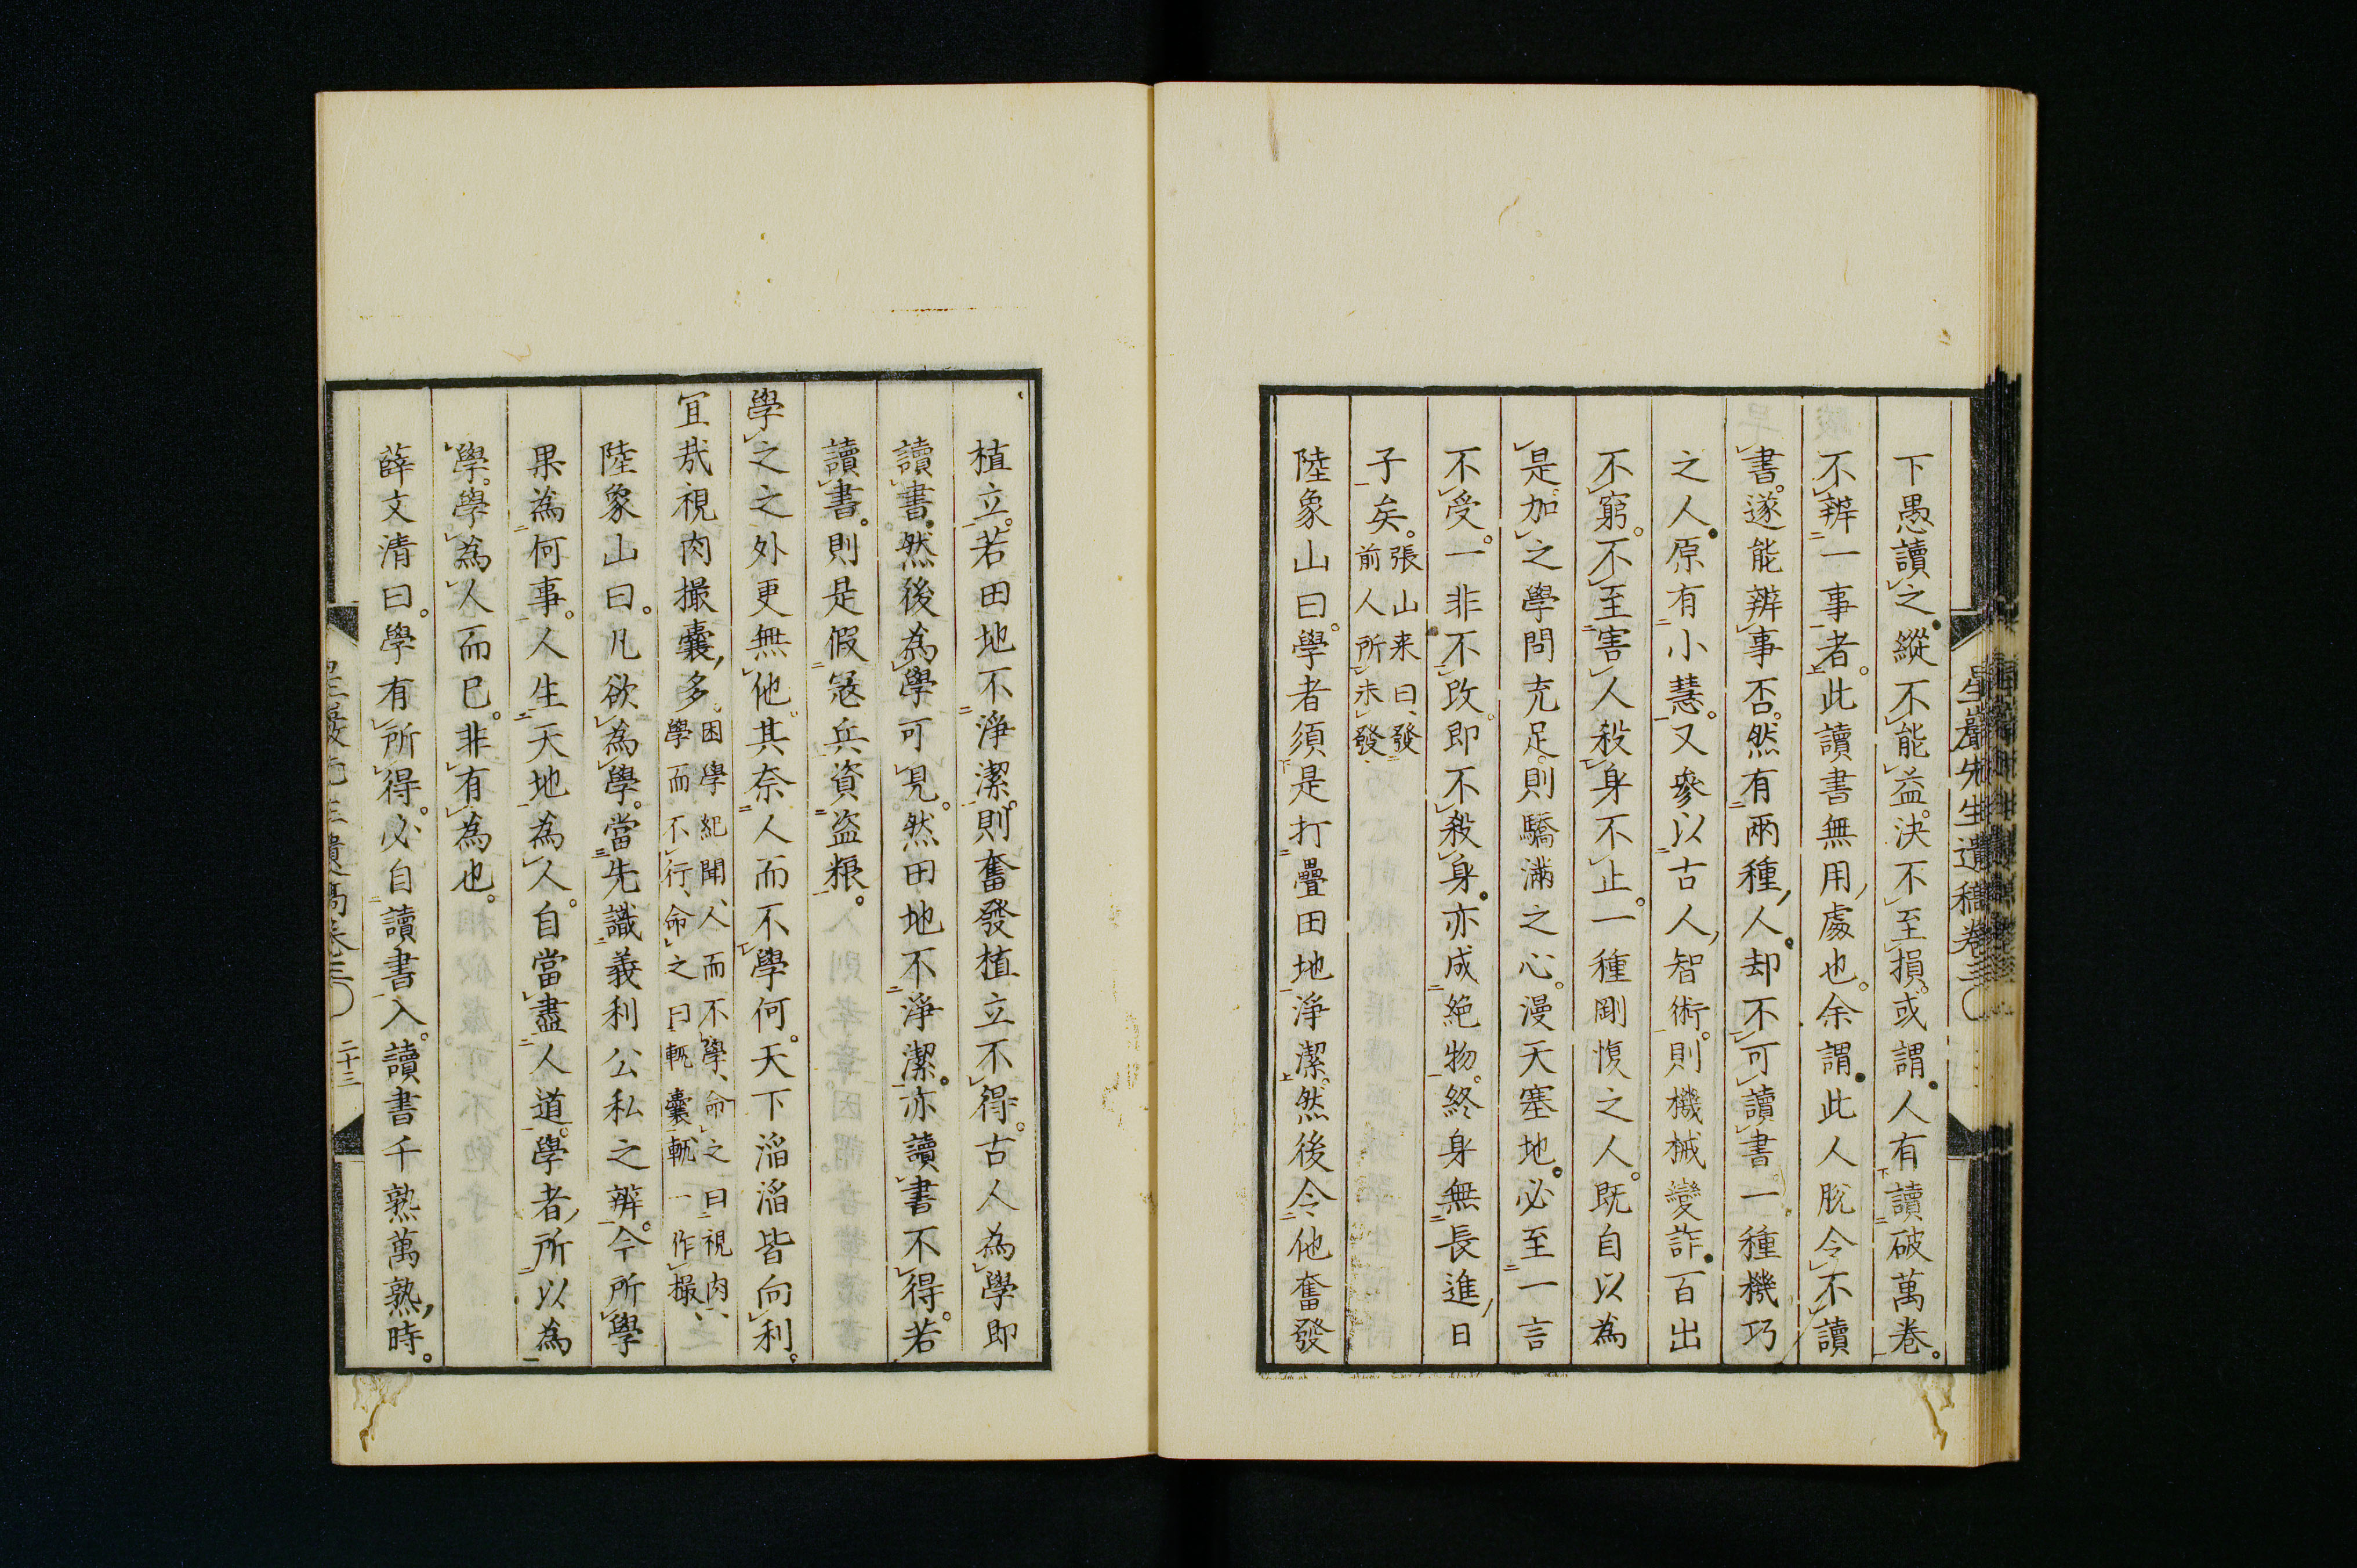 下愚讀之縱不能益。決不至損。或謂人有讀破萬卷。
不辨一事者。此讀書無用處也。余謂此人脫令不讀
書。遂能辨事否。然有兩種人却不可讀書。一種機巧
之人原有小慧。又參以古人智術。則機械變詐百出
不窮。不至害人殺身不止。一種剛愎之人。既自以為
是加之學問充足。則驕滿之心。漫天塞地。必至一言
不受。一非不改。即不殺身。亦成絶物。終身無長進日
子矣。張山来曰、發
前人所未發
陸象山曰。學者須是打疊田地淨潔。然後令他奮發
植立。若田地不淨潔。則奮發植立不得。古人為學即
讀書。然後為學可見。然田地不淨潔。亦讀書不得。若
讀書。則是假冦兵資盗粮。
學之之外更無他。其奈人而不學何。天下滔滔皆向利。
冝哉視肉撮囊多。困學紀聞、人而不學、命之曰視肉、
學而不行、命之曰軏囊、軏一作撮、
陸象山曰。凡欲為學。當先識義利公私之辨。今所學
果為何事。人生天地為人。自當盡人道。學者所以為
學。學為人而巳。非有為也。
薛文清曰。學有所得。必自讀書入。讀書千熟萬熟時。
二十三